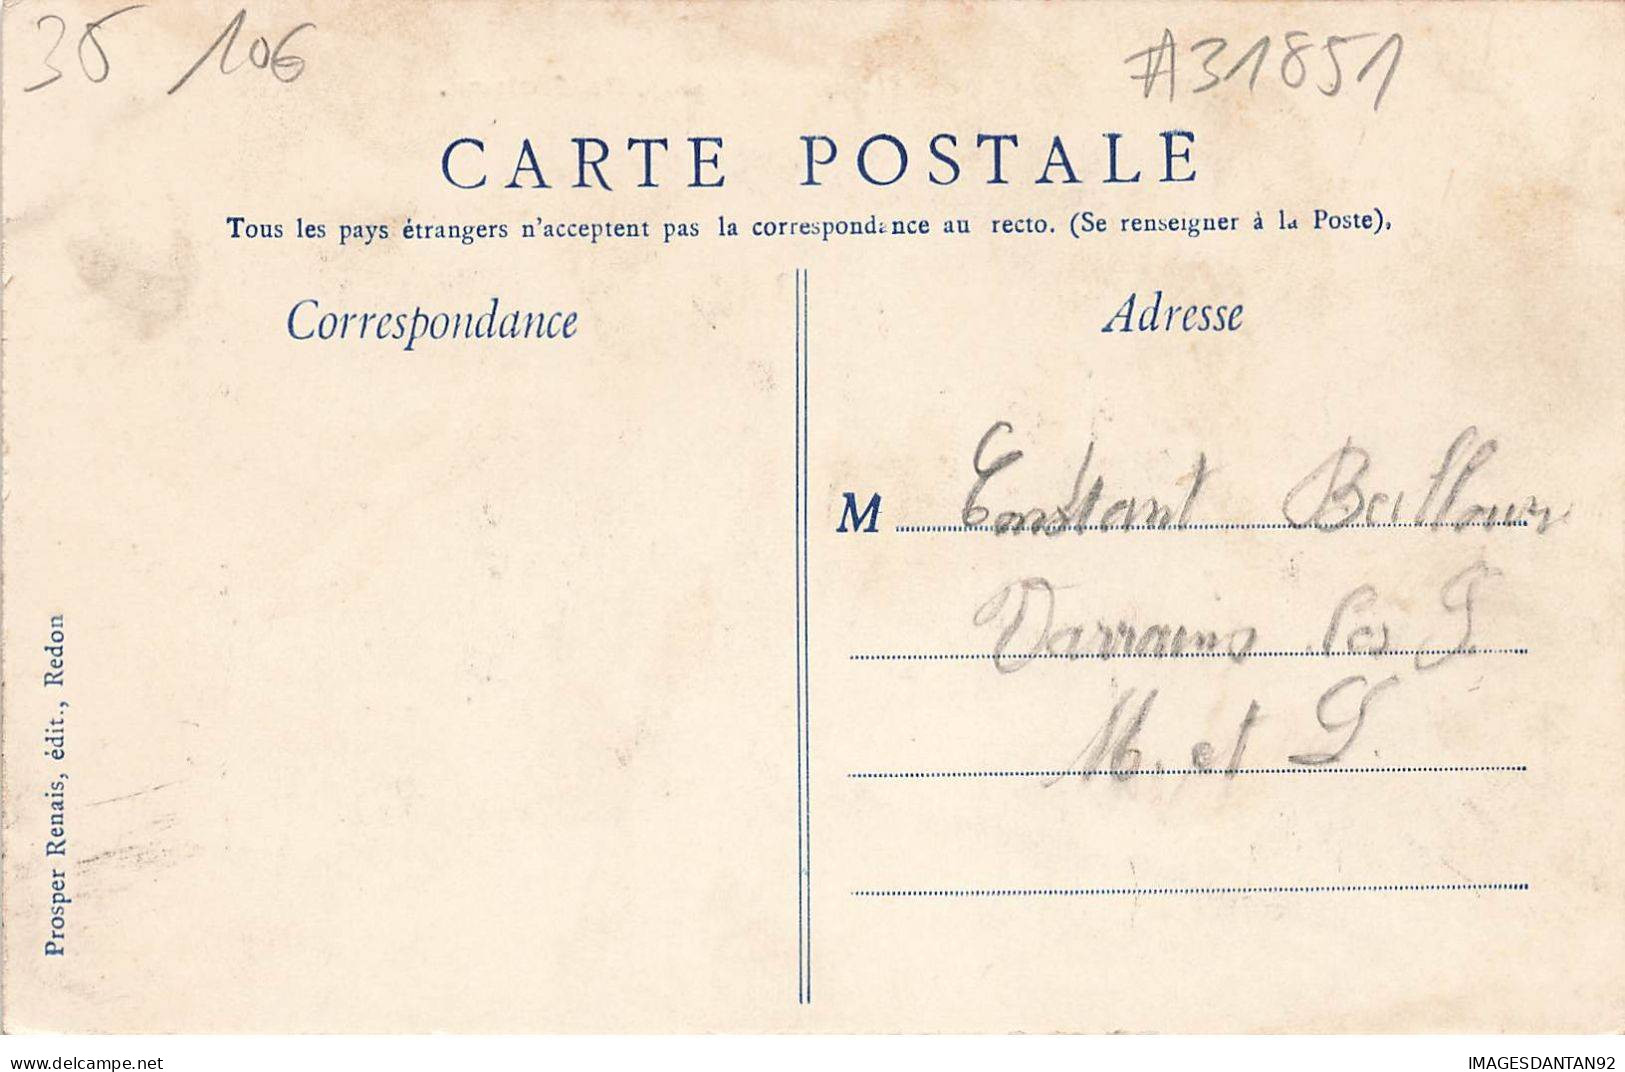 35 106
#31851
CARTE POSTALE
Tous les pays étrangers n'acceptent pas la correspondance au recto. (Se renseigner à la Poste).
Correspondance
Adresse
M Constant
Varrains les
M. et L.
Prosper Renais, édit., Redon
delcampe.net
IMAGESDANTAN92